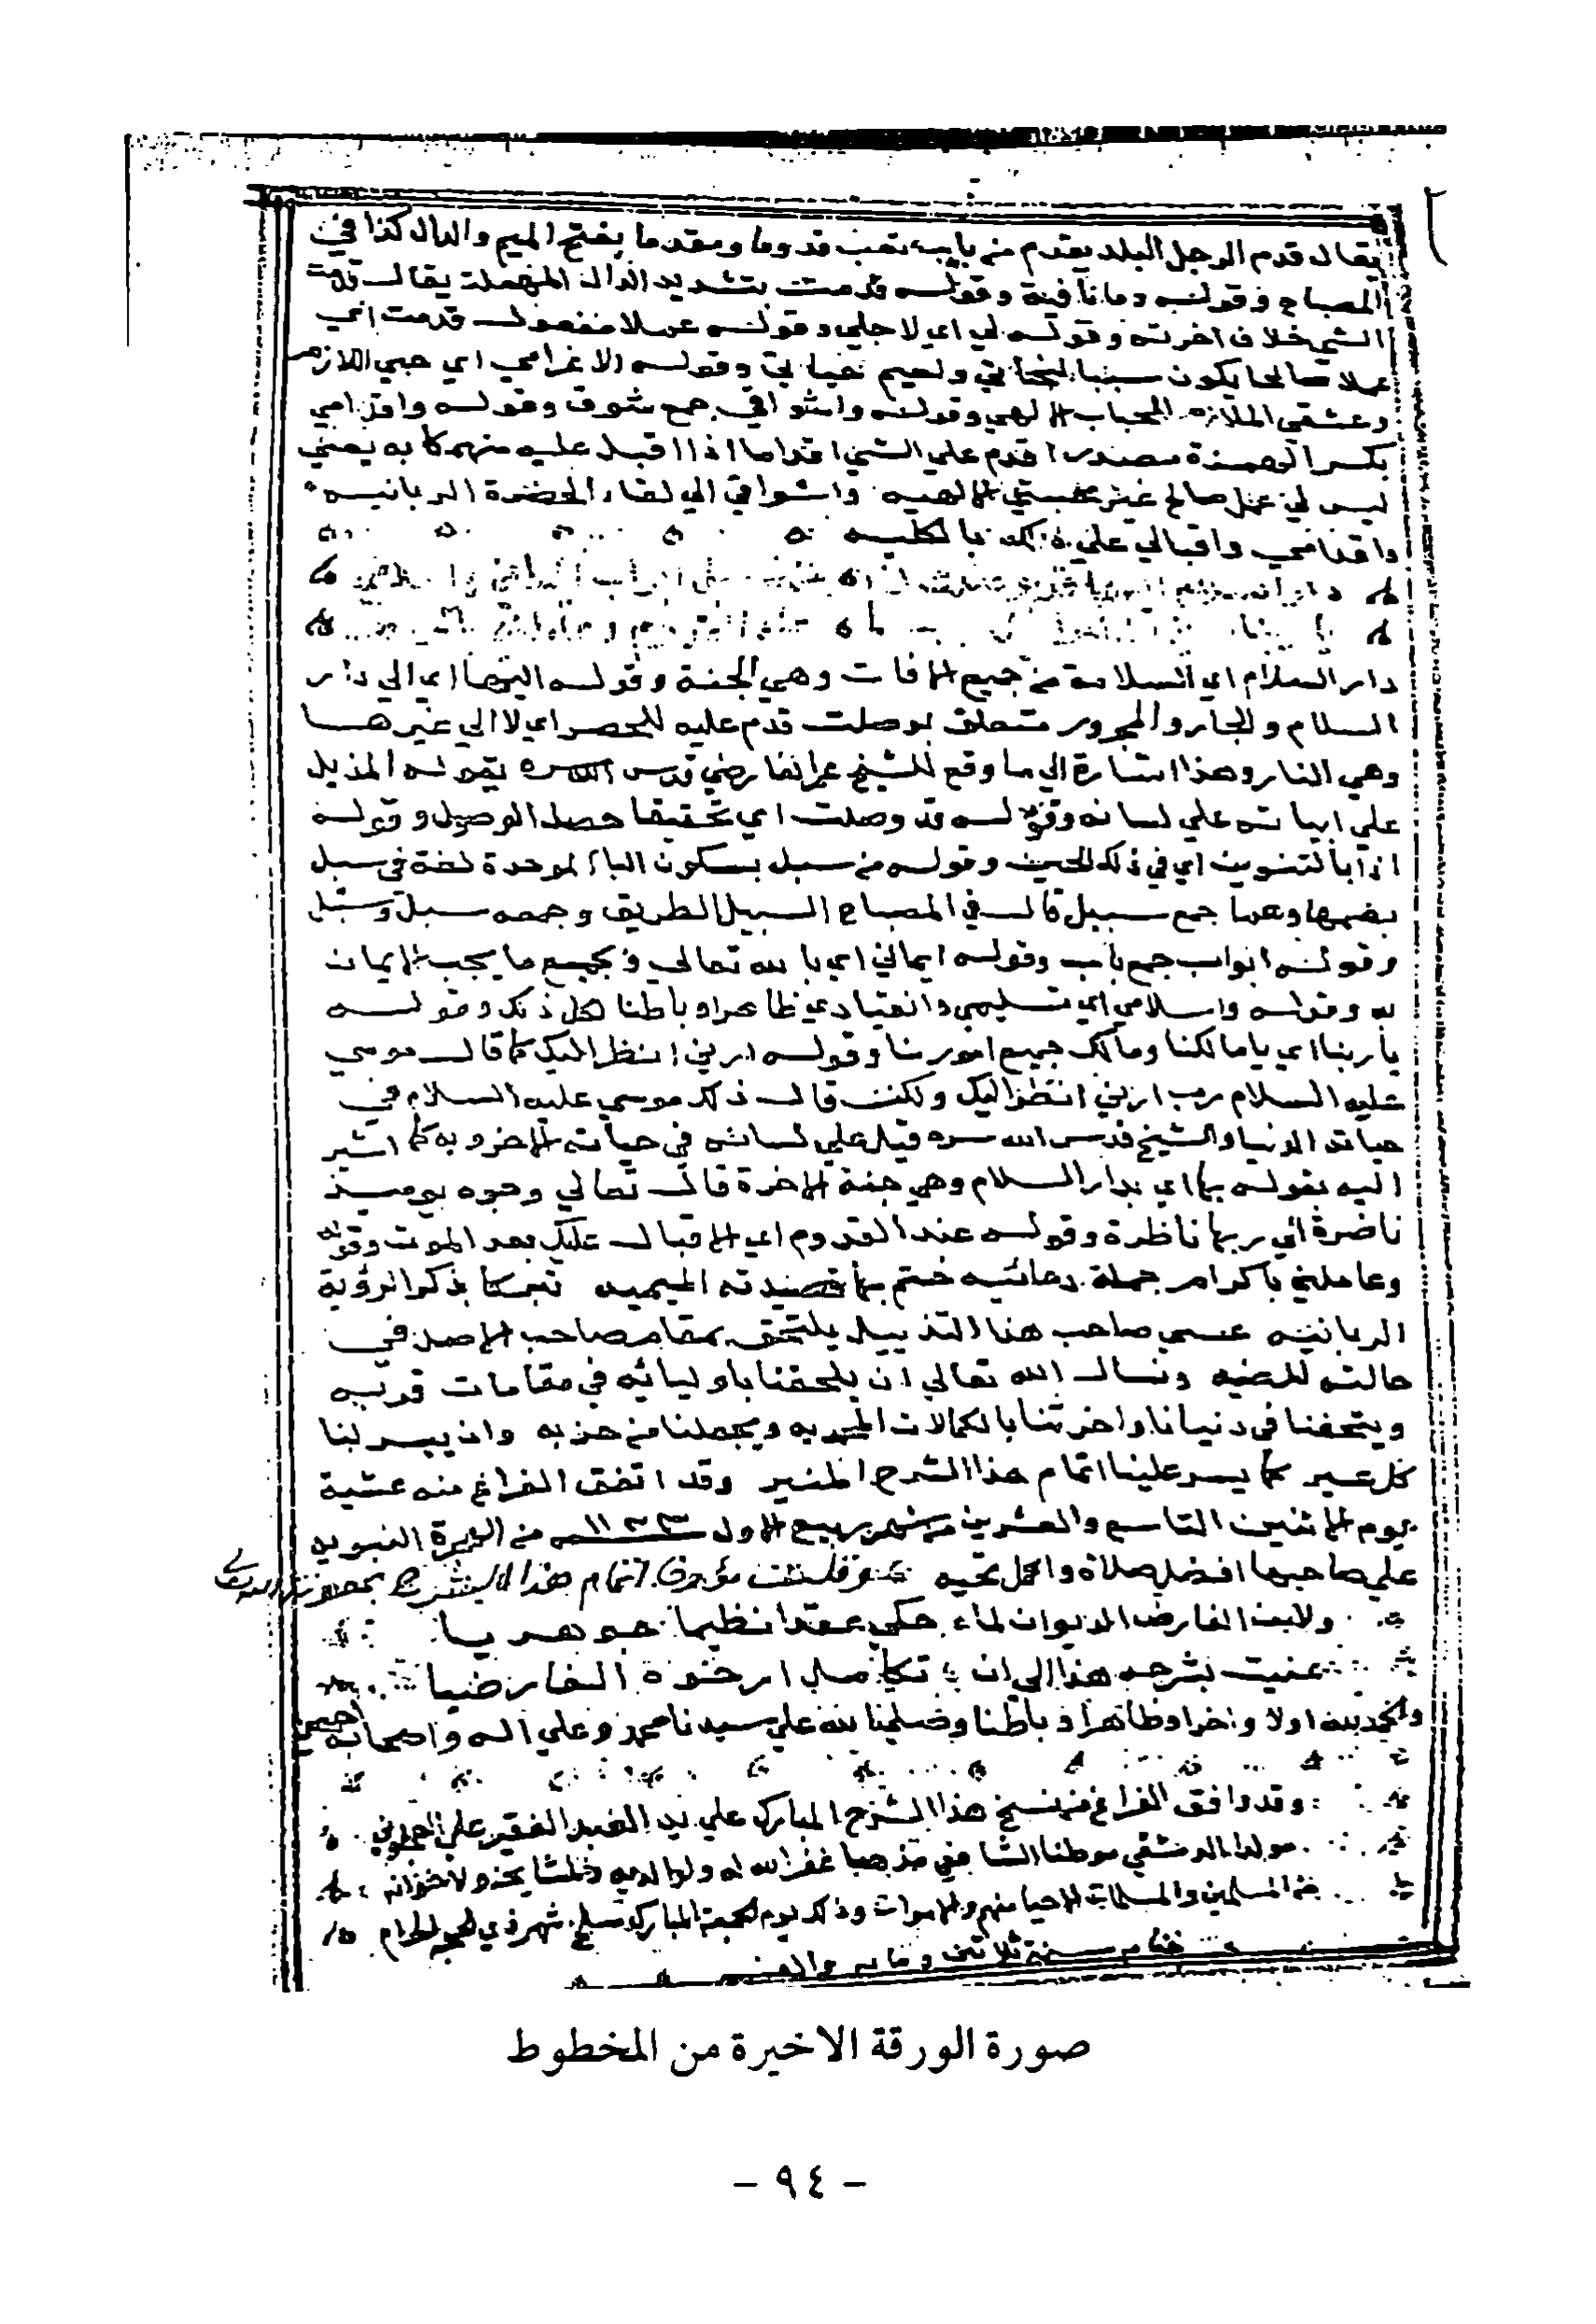 يقال قدم الرجل البلد يقدم من باب تعب قدوما ومقدما بفتح الميم والدال كذا في
المصباح وقوله وما نافية وقوله قدمت بتشديد الدال المهملة يقال قدمت
الشي خلاف اخرته وقوله لي اي لاجلي وقوله عملا مفعول قدمت اي
عملا صالحا يكون سببا لنجاتي ونعيم حياتي وقوله الا غرامي اي حبي اللازم
وعشقي الملازم الالهي وقوله واشواقي جمع شوق وقوله واقدامي
بكسر الهمزة مصدر اقدم علي الشي اقداما اذا اقبل عليه يعني
ليس لي عمل صالح غير محبتي الالهيه واشواقي الي لقاء الحضرة الربانيه
واقدامي واقبالي علي ذلك بالكليه
دار السلام اي السلامة من جميع الافات وهي الجنة وقوله اليها اي الي دار
السلام والجار والمجرور متعلق بوصلت قدم عليه للحصر اي لا الي غيرها
وهي النار وهذا اشارة الي ما وقع للشيخ عمر الفارضي قدس الله سره بقوله المذيل
علي ابياته علي لسانه وقوله قد وصلت اي تحقيقا حصل الوصول وقوله
اذا بالتنوين اي في ذلك الحين وقوله من سبل بسكون الباء الموحدة لغة في سبل
بضمها وهما جمع سبيل قال في المصباح السبيل الطريق وجمعه سبل وسبل
وقوله ابواب جمع باب وقوله ايماني اي بالله تعالي وبجميع ما يجب الايمان
به وقوله واسلامي اي تسليمي وانقيادي ظاهرا وباطنا لكل ذلك وقوله
يا ربنا اي يا مالكنا ومالك جميع امورنا وقوله ارني انظر اليك كما قال موسي
عليه السلام رب ارني انظر اليك ولكن قال ذلك موسي عليه السلام في
حياته الدنيا والشيخ قدس الله سره قيل علي لسانه في حياته الاخرويه كما اشير
اليه بقوله بها اي بدار السلام وهي جنة الاخرة قال تعالي وجوه يوميذ
ناضرة الي ربها ناظرة وقوله عند القدوم اي الاقبال عليك بعد الموت وقوله
وعاملني باكرام جملة دعائيه ختم بها قصيدته الميميه تبركا بذكر الرؤية
الربانيه عسي صاحب هذا التذييل يلتحق بمقام صاحب الاصل في
حالته المرضيه ونسال الله تعالي ان يلحقنا باوليائه في مقامات قربه
ويتحفنا في دنيانا واخرتنا بالكمالات ويجعلنا من حزبه وان ييسر لنا
كل عسير كما يسر علينا اتمام هذا الشرح المنير وقد اتفق الفراغ منه عشية
يوم الاثنين التاسع والعشرين من شهر ربيع الاول من الهجرة النبويه
علي صاحبها افضل صلاة واكمل تحيه وقلت مؤرخا اتمام هذا الشرح
ولابن الفارض الديوان لماء حكي عقدا نظيما جوهريا
عنيت بشرحه هذا الي ان تكامل ارخوه الفارضيا
والحمد لله اولا واخرا وظاهرا وباطنا وصلي الله علي سيدنا محمد وعلي اله واصحابه اجمعين
وقد وافق الفراغ من نسخ هذا الشرح المبارك علي يد العبد الفقير علي
مولدا الدمشقي موطنا الشافعي مذهبا غفر الله له ولوالديه ولمشايخه ولاخوانه
من المسلمين والمسلمات الاحيا منهم والاموات وذلك يوم الجمعة المبارك شهر ذي الحجه الحرام
ختام سنة ثلاثين ومايه والف
صورة الورقة الاخيرة من المخطوط
- ٩٤ -